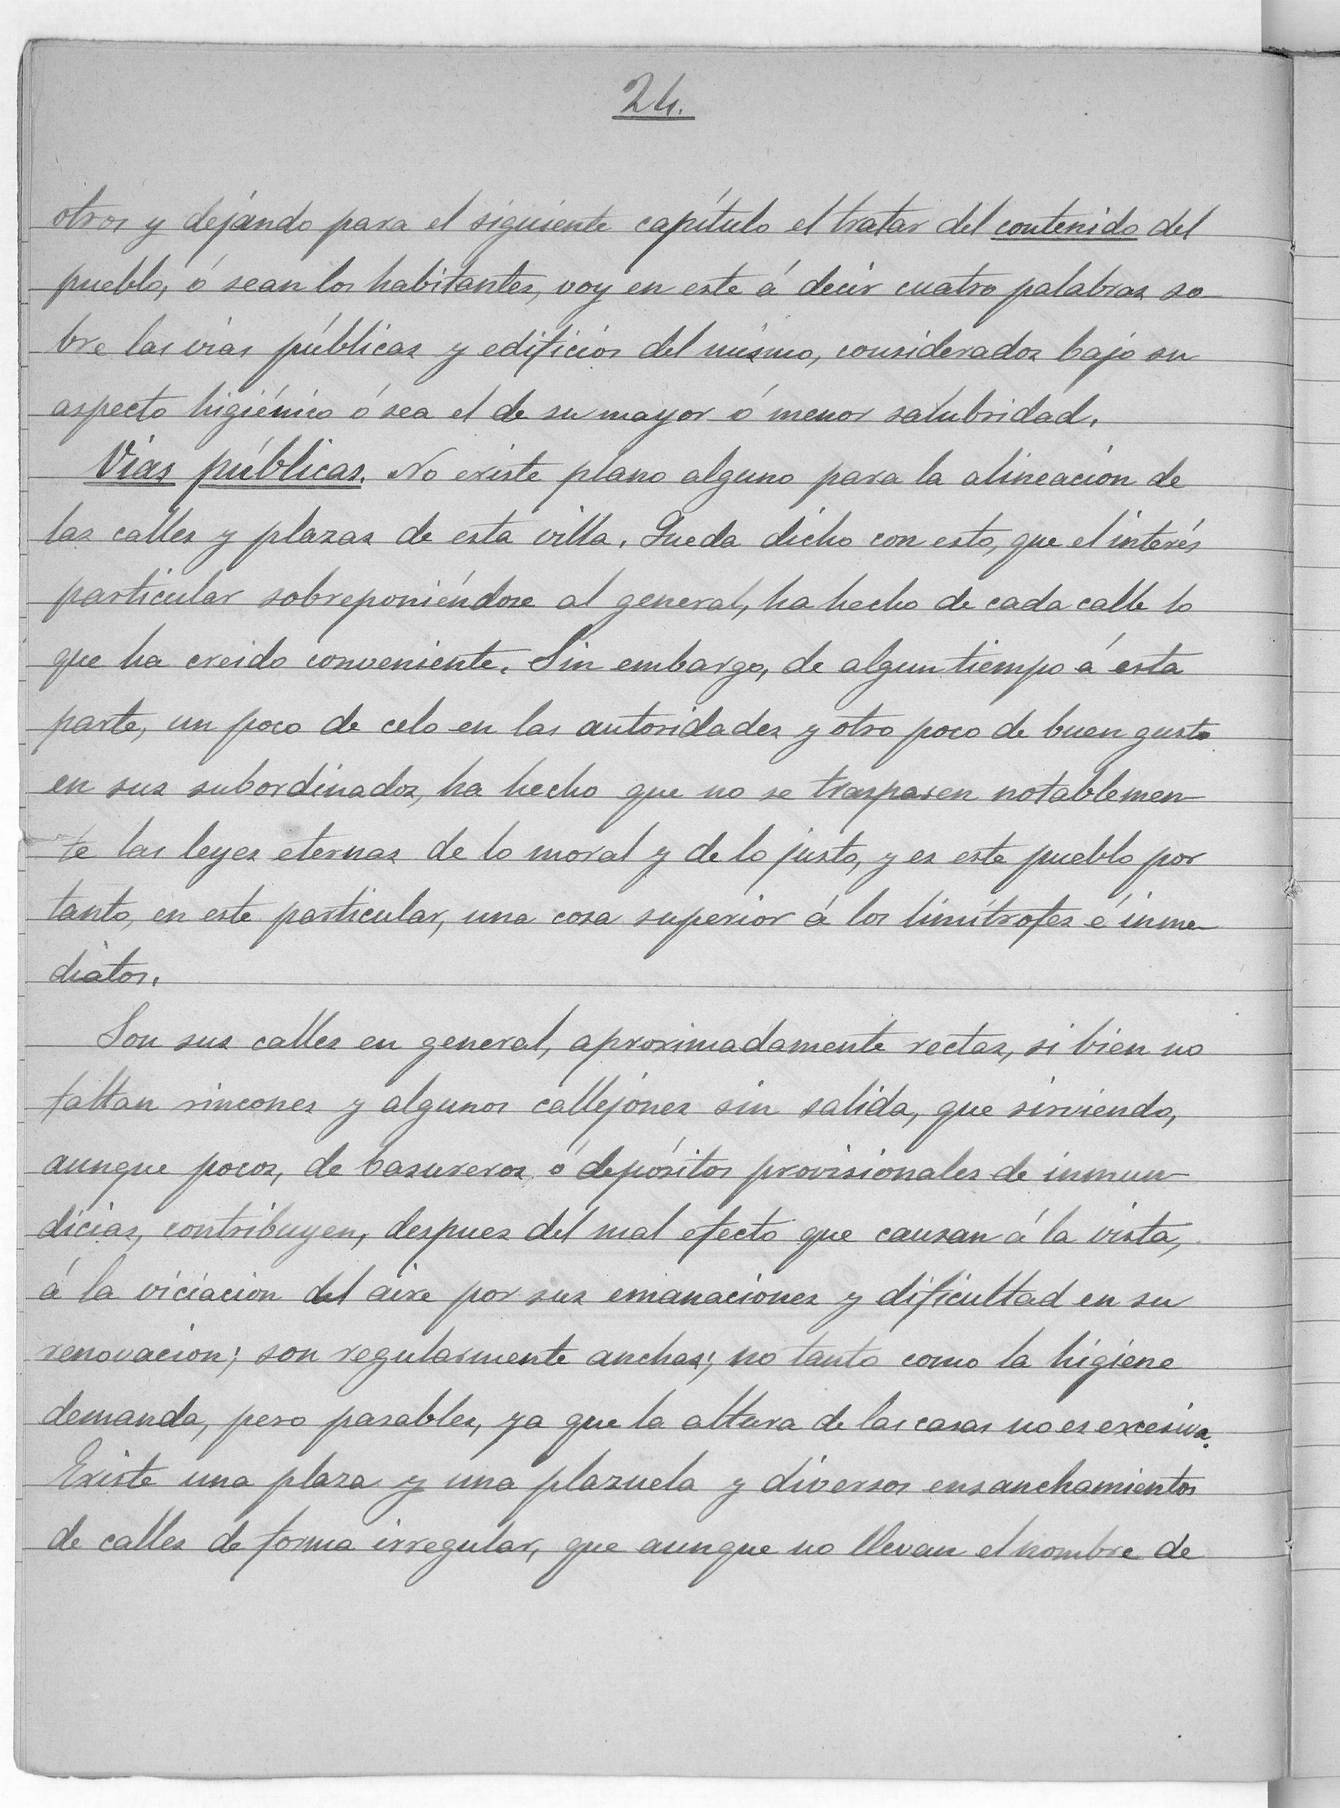 24.
otros y dejando para el siguiente capítulo el tratar del contenido del
pueblo, ó sean los habitantes, voy en este á decir cuatro palabras so-
bre las vias públicas y edificios del mismo, considerados bajo su
aspecto higiénico ó sea el de su mayor ó menor salubridad.
Vias públicas. No existe plano alguno para la alineacion de
las calles y plazas de esta villa. Queda dicho con esto, que el interés
particular sobreponiéndose al general, ha hecho de cada calle lo
que ha creido conveniente. Sin embargo, de algun tiempo á esta
parte, un poco de celo en las autoridades y otro poco de buen gusto
en sus subordinados, ha hecho que no se traspasen notablemen-
te las leyes eternas de lo moral y de lo justo, y es este pueblo por
tanto, en este particular, una cosa superior á los limítrofes é inme-
diatos.
Son sus calles en general, aproximadamente rectas, si bien no
faltan rincones y algunos callejones sin salida, que sirviendo,
aunque pocos, de basureros ó depósitos provisionales de inmun-
dicias, contribuyen, despues del mal efecto que causan á la vista,
á la viciacion del aire por sus emanaciones y dificultad en su
renovacion; son regularmente anchas; no tanto como la higiene
demanda, pero pasables, ya que la altura de las casas no es excesiva.
Existe una plaza y una plazuela y diversos ensanchamientos
de calles de forma irregular, que aunque no llevan el nombre de